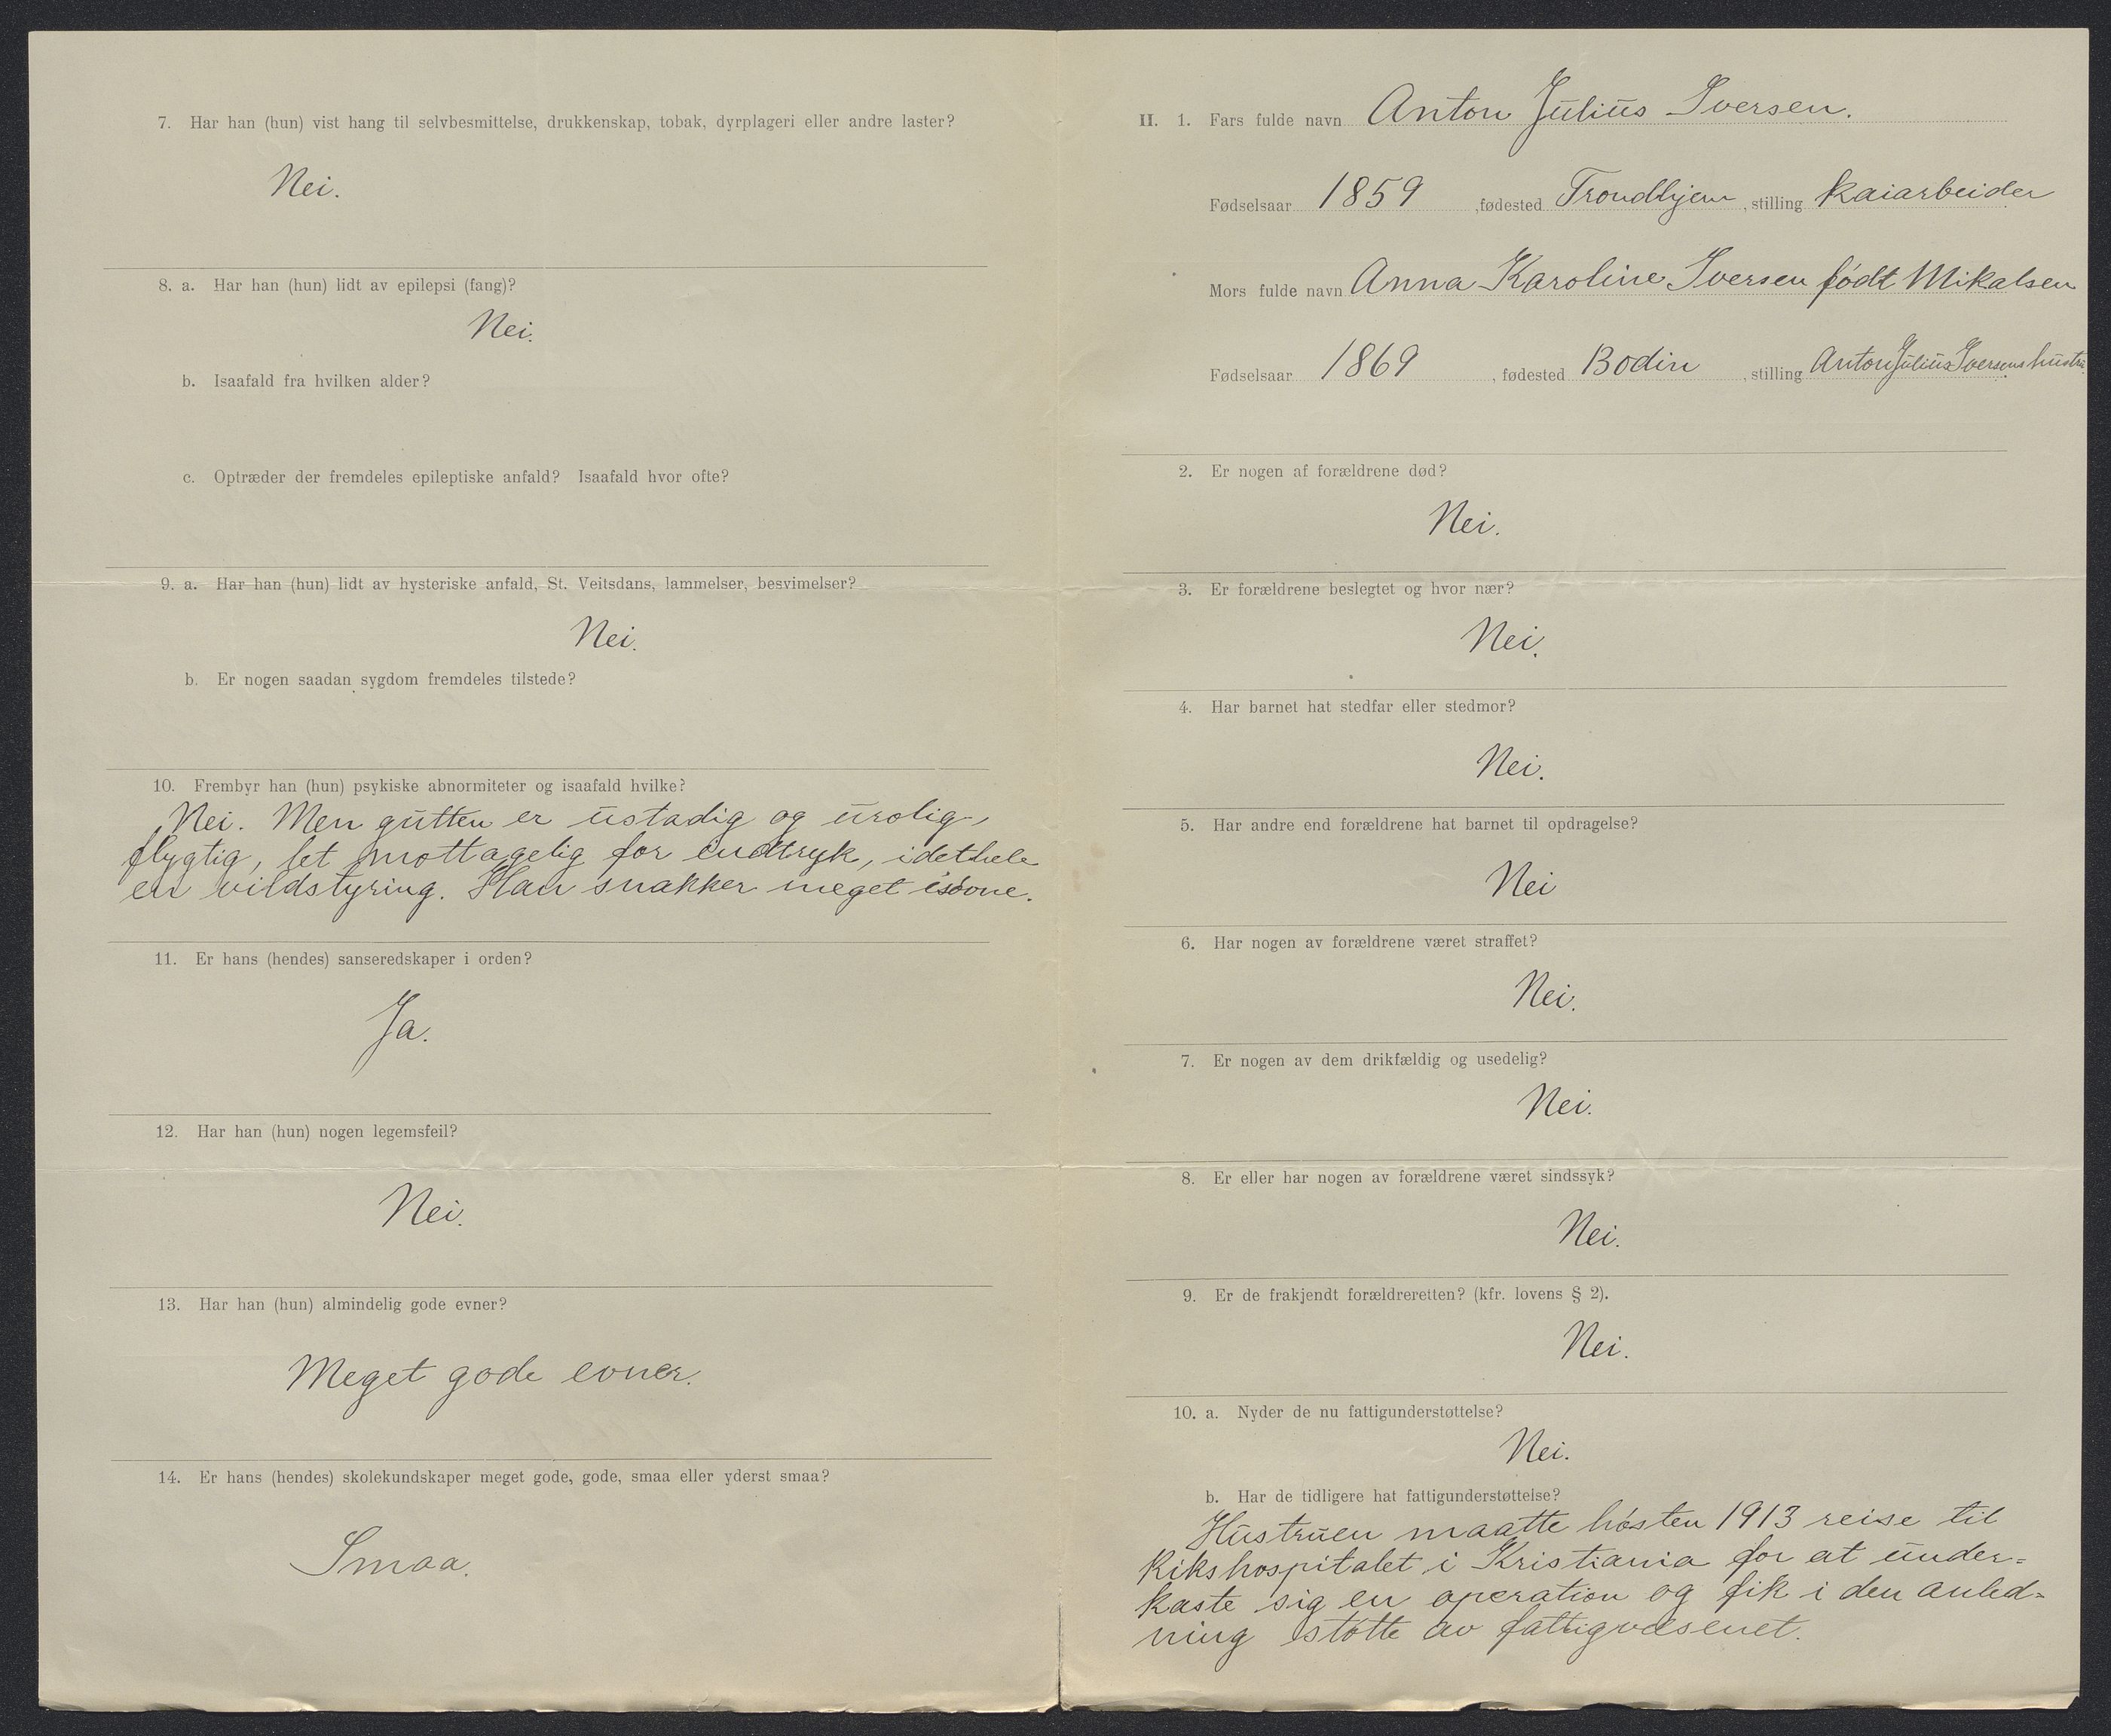 7. Har han (hun) vist hang til selvbesmittelse, drukkenskap, tobak, dyrplageri eller andre laster?
Nei.
8. a. Har han (hun) lidt av epilepsi (fang)?
Nei.
b. Isaafald fra hvilken alder?
c. Optræder der fremdeles epileptiske anfald? Isaafald hvor ofte?
9. a. Har han (hun) lidt av hysteriske anfald, St. Veitsdans, lammelser, besvimelser?
Nei.
b. Er nogen saadan sygdom fremdeles tilstede?
10. Frembyr han (hun) psykiske abnormiteter og isaafald hvilke?
Nei. Men gutten er ustadig og urolig,
flygtig, let mottagelig for indtryk, idethele
en vildstyring. Han snakker meget isövne.
11. Er hans (hendes) sanseredskaper i orden?
Ja.
12. Har han (hun) nogen legemsfeil?
Nei.
13. Har han (hun) almindelig gode evner?
Meget gode evner.
14. Er hans (hendes) skolekundskaper meget gode, gode, smaa eller yderst smaa?
Smaa.
II. 1. Fars fulde navn Anton Julius Iversen.
Fødselsaar 1859, fødested Trondhjem, stilling kaiarbeider
Mors fulde navn Anna Karoline Iversen født Mikalsen
Fødselsaar 1869, fødested Bodin, stilling Anton Julius Iversens hustru.
2. Er nogen af forældrene død?
Nei.
3. Er forældrene beslegtet og hvor nær?
Nei.
4. Har barnet hat stedfar eller stedmor?
Nei.
5. Har andre end forældrene hat barnet til opdragelse?
Nei
6. Har nogen av forældrene været straffet?
Nei.
7. Er nogen av dem drikfældig og usedelig?
Nei.
8. Er eller har nogen av forældrene været sindssyk?
Nei.
9. Er de frakjendt forældreretten? (kfr. lovens § 2).
Nei.
10. a. Nyder de nu fattigunderstøttelse?
Nei.
b. Har de tidligere hat fattigunderstøttelse?
Hustruen maatte hösten 1913 reise til
Rikshospitalet i Kristiania for at under=
kaste sig en operation og fik i den anled=
ning støtte av fattigvæsenet.